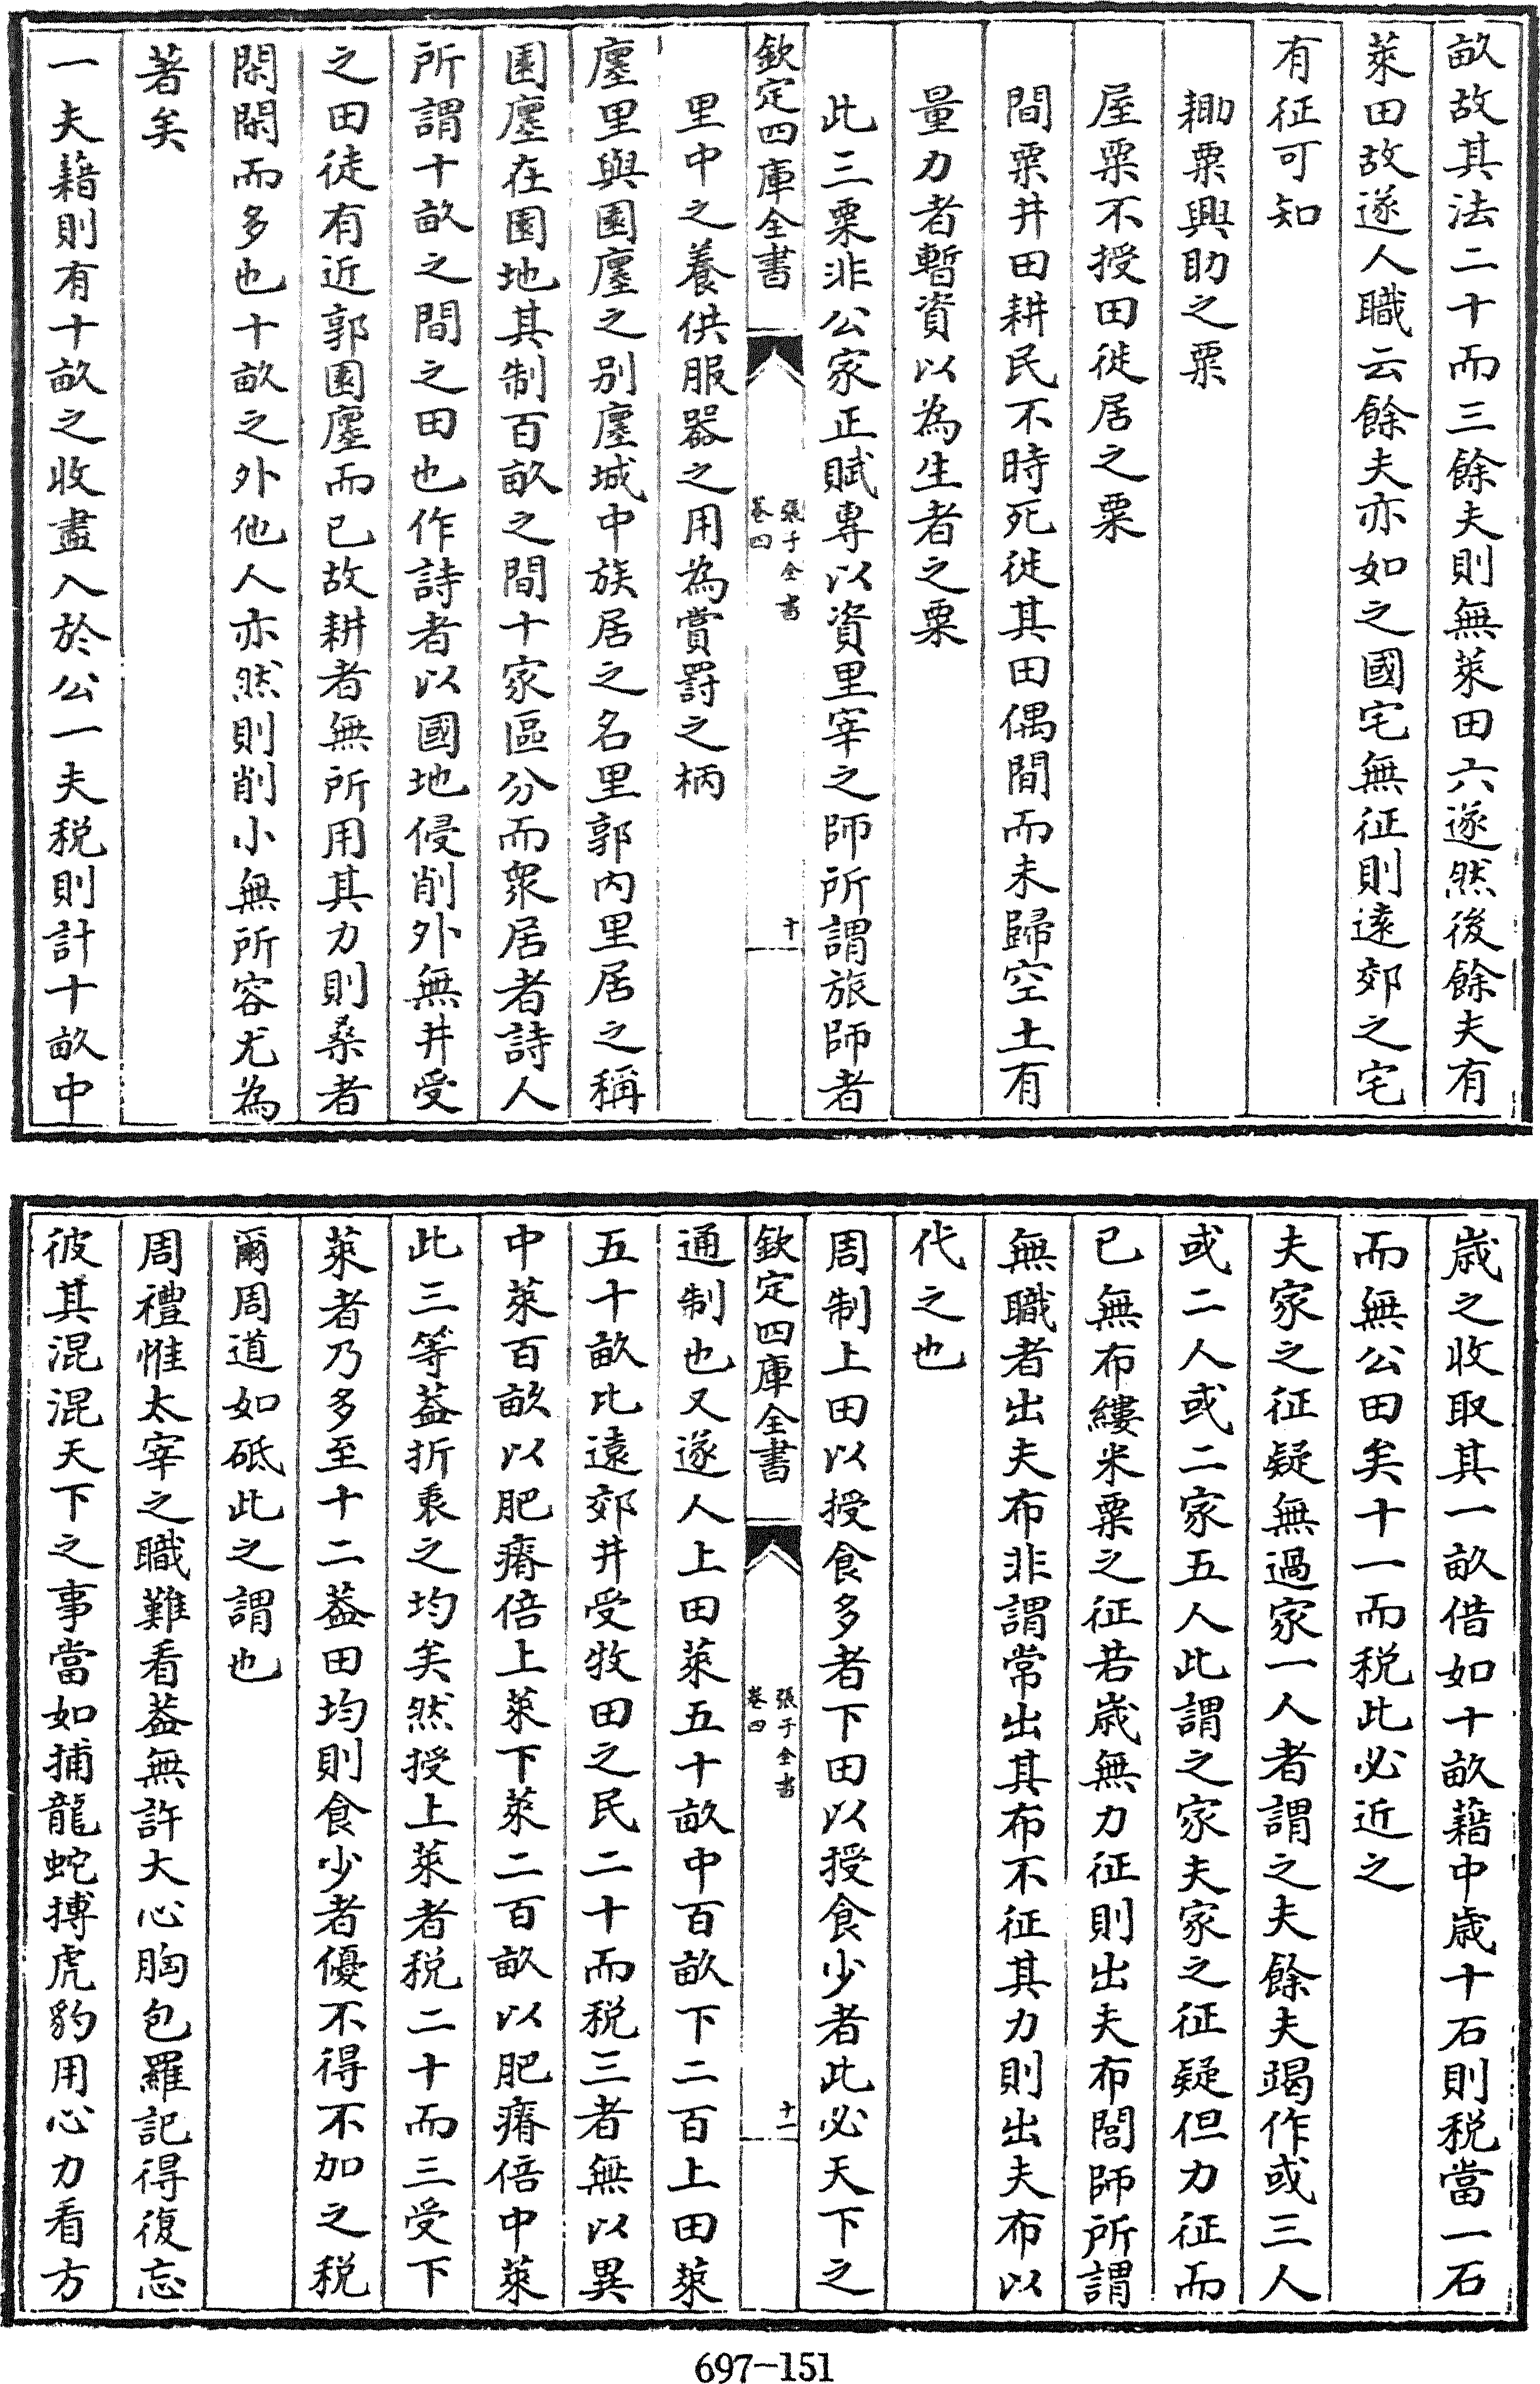 畝故其法二十而三餘夫則無萊田六遂然後餘夫有
萊田故遂人職云餘夫亦如之國宅無征則遠郊之宅
有征可知
耡粟興助之粟
屋粟不授田徙居之粟
間粟井田耕民不時死徙其田偶間而未歸空土有
量力者暫資以為生者之粟
此三粟非公家正賦專以資里宰之師所謂旅師者
欽定四庫全書
張子全書
卷四
十
里中之養供服器之用為賞罰之柄
廛里與園廛之别廛城中族居之名里郭内里居之稱
園廛在園地其制百畝之間十家區分而衆居者詩人
所謂十畝之間之田也作詩者以國地侵削外無井受
之田徒有近郭園廛而已故耕者無所用其力則桑者
閑閑而多也十畝之外他人亦然則削小無所容尤為
著矣
一夫藉則有十畝之收盡入於公一夫税則計十畝中
歳之收取其一畝借如十畝藉中歳十石則税當一石
而無公田矣十一而税此必近之
夫家之征疑無過家一人者謂之夫餘夫竭作或三人
或二人或二家五人此謂之家夫家之征疑但力征而
已無布縷米粟之征若歳無力征則出夫布閭師所謂
無職者出夫布非謂常出其布不征其力則出夫布以
代之也
周制上田以授食多者下田以授食少者此必天下之
欽定四庫全書
張子全書
卷四
十一
通制也又遂人上田萊五十畝中百畝下二百上田萊
五十畝比遠郊井受牧田之民二十而税三者無以異
中萊百畝以肥瘠倍上萊下萊二百畝以肥瘠倍中萊
此三等葢折衷之均矣然授上萊者税二十而三受下
萊者乃多至十二葢田均則食少者優不得不加之税
爾周道如砥此之謂也
周禮惟太宰之職難看葢無許大心胸包羅記得復忘
彼其混混天下之事當如捕龍蛇搏虎豹用心力看方
697-151